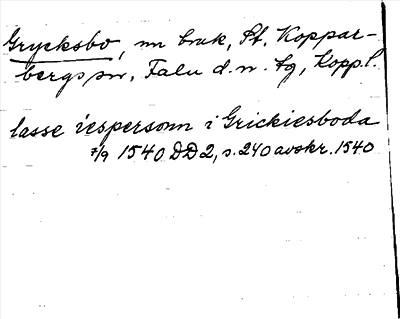 Grycksbo, nu bruk, St. Koppar-
bergs sn, Falu d. n. tg, Kopp.l.
lasse iespersonn i Grickiesboda
7/9 1540 DD2, s. 240 avskr. 1540